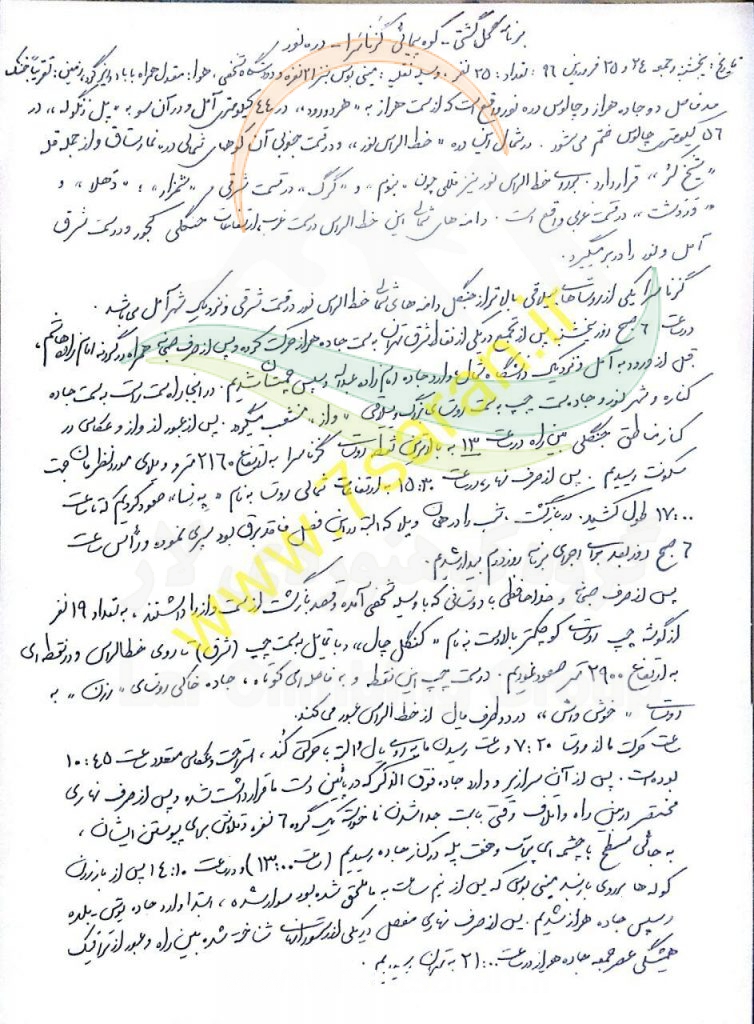 برنامه گل گشتی - کوه پیمائی گزناسرا - دره نور
تاریخ: پنجشنبه و جمعه ۲۴ و ۲۵ فروردین ۹۶ تعداد: ۲۵ نفر وسیله نقلیه: مینی بوس بنز ۲۱ نفره و دو دستگاه شخصی هوا: معتدل همراه با باد زمین: تقریباً خشک
حد فاصل دو جاده هراز و چالوس دره نور واقع است که از سمت هراز به «هردورود» در ۴۴ کیلومتری آمل و در آن سو به «پل زنگوله» در
۵۶ کیلومتری چالوس ختم می شود. در شمال این دره «خط الراس نور» و در قسمت جنوبی آن کوه های شمالی دره نمارستاق و از جمله قله
قرار دارد. بر روی خط الراس نور نیز قللی چون و «گرگ» در قسمت شرقی و
در قسمت غربی واقع است. دامنه های شمالی این خط الراس در سمت غرب، ارتفاعات جنگلی کجور و در سمت شرق
آمل و نور را در بر میگیرد.
گزناسرا یکی از روستاهای ییلاقی بالاتر از جنگل دامنه های شمالی خط الراس نور در قسمت شرقی و نزدیک شهر آمل می باشد.
در ساعت ۶ صبح روز پنجشنبه پس از تجمع در یکی از نقاط شرق تهران به سمت جاده هراز حرکت کرده و پس از صرف صبحانه همراه در گردنه امام زاده هاشم،
قبل از ورود به آمل و نزدیک دانشگاه شمال وارد جاده امام زاده عبداله و سپس چمستان شدیم. در اینجا راه سمت راست به سمت جاده
کناره و شهر نور و جاده سمت چپ به سمت روستای بزرگ و ییلاقی «واز» منشعب میگردد. پس از عبور از واز و عکاسی در
کنار مناطق جنگلی بین راه در ساعت ۱۳ به بالاترین نقطه روستای گزناسرا به ارتفاع ۲۱۶۰ متر و ویلای مورد نظرمان جهت
سکونت رسیدیم. پس از صرف نهار در ساعت ۱۵:۳۰ به ارتفاعات شمالی روستا به نام صعود کردیم که تا ساعت
۱۷:۰۰ طول کشید. در بازگشت، شب را در همان ویلا که البته در این فصل فاقد برق بود سپری نموده و راس ساعت
۶ صبح روز بعد برای اجرای برنامه روز دوم بیدار شدیم.
پس از صرف صبحانه و خداحافظی با دوستانی که با وسیله شخصی آمده و قصد بازگشت از سمت واز را داشتند، به تعداد ۱۹ نفر
از گوشه چپ روستای کوچکتر بالادست به نام «کنگل چال» و با تمایل به سمت چپ (شرق) تا روی خط الراس و در نقطه ای
به ارتفاع ۲۹۰۰ متر صعود نمودیم. در سمت چپ این نقطه و به فاصله ای کوتاه، جاده خاکی روستای «رزن» به
روستای «خوش واش» در دو طرف یال از خط الراس عبور می کند.
ساعت حرکت ما از روستا ۷:۲۰ و ساعت رسیدن ما به روی یال و البته با حرکتی کُند، استراحت و عکاسی متعدد ساعت ۱۰:۴۵
بوده است. پس از آن سرازیر و وارد جاده فوق الذکر که در پائین دست ما قرار داشت شده و پس از صرف نهاری
مختصر در بین راه و اتلاف وقتی بابت جدا شدن ناخواسته یک گروه ۶ نفره و تلاش برای پیوستن ایشان،
به جائی مسطح با چشمه ای پرآب و حق پله در کنار جاده رسیدیم (ساعت ۱۳:۰۰) و در ساعت ۱۴:۱۰ پس از بار زدن
کوله ها بر روی باربند مینی بوس که پس از نیم ساعت به ما ملحق شده بود سوار شده، ابتدا وارد جاده یوش - بلده
و سپس جاده هراز شدیم. پس از صرف نهاری مفصل در یکی از رستورانهای شناخته شده بین راه و عبور از ترافیک
همیشگی عصر جمعه جاده هراز در ساعت ۲۱:۰۰ به تهران رسیدیم.
www.7saran.ir